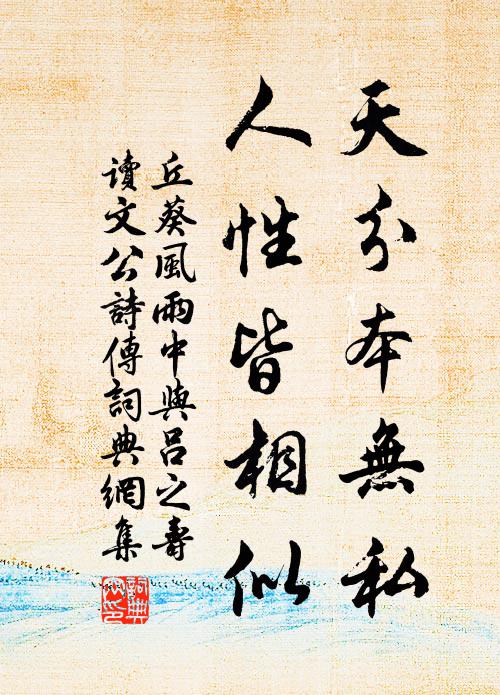 天分本無私
人性皆相似
丘葵風雨中與呂之壽
讀文公詩傳詞典網集